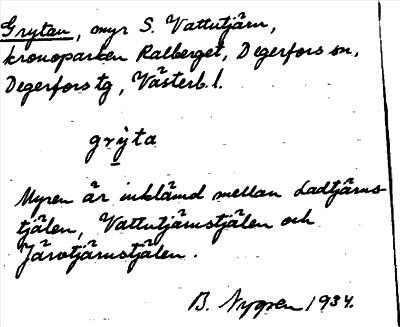 Grytan, myr S. Vattutjärn,
kronoparken Kalberget, Degerfors sn,
Degerfors tg, Västerb. l.
grýta
Myren är inklämd mellan Ladtjärns-
tjälen, Vattutjärnstjälen och
Järvtjärnstjälen.
B. Nygren 1934.